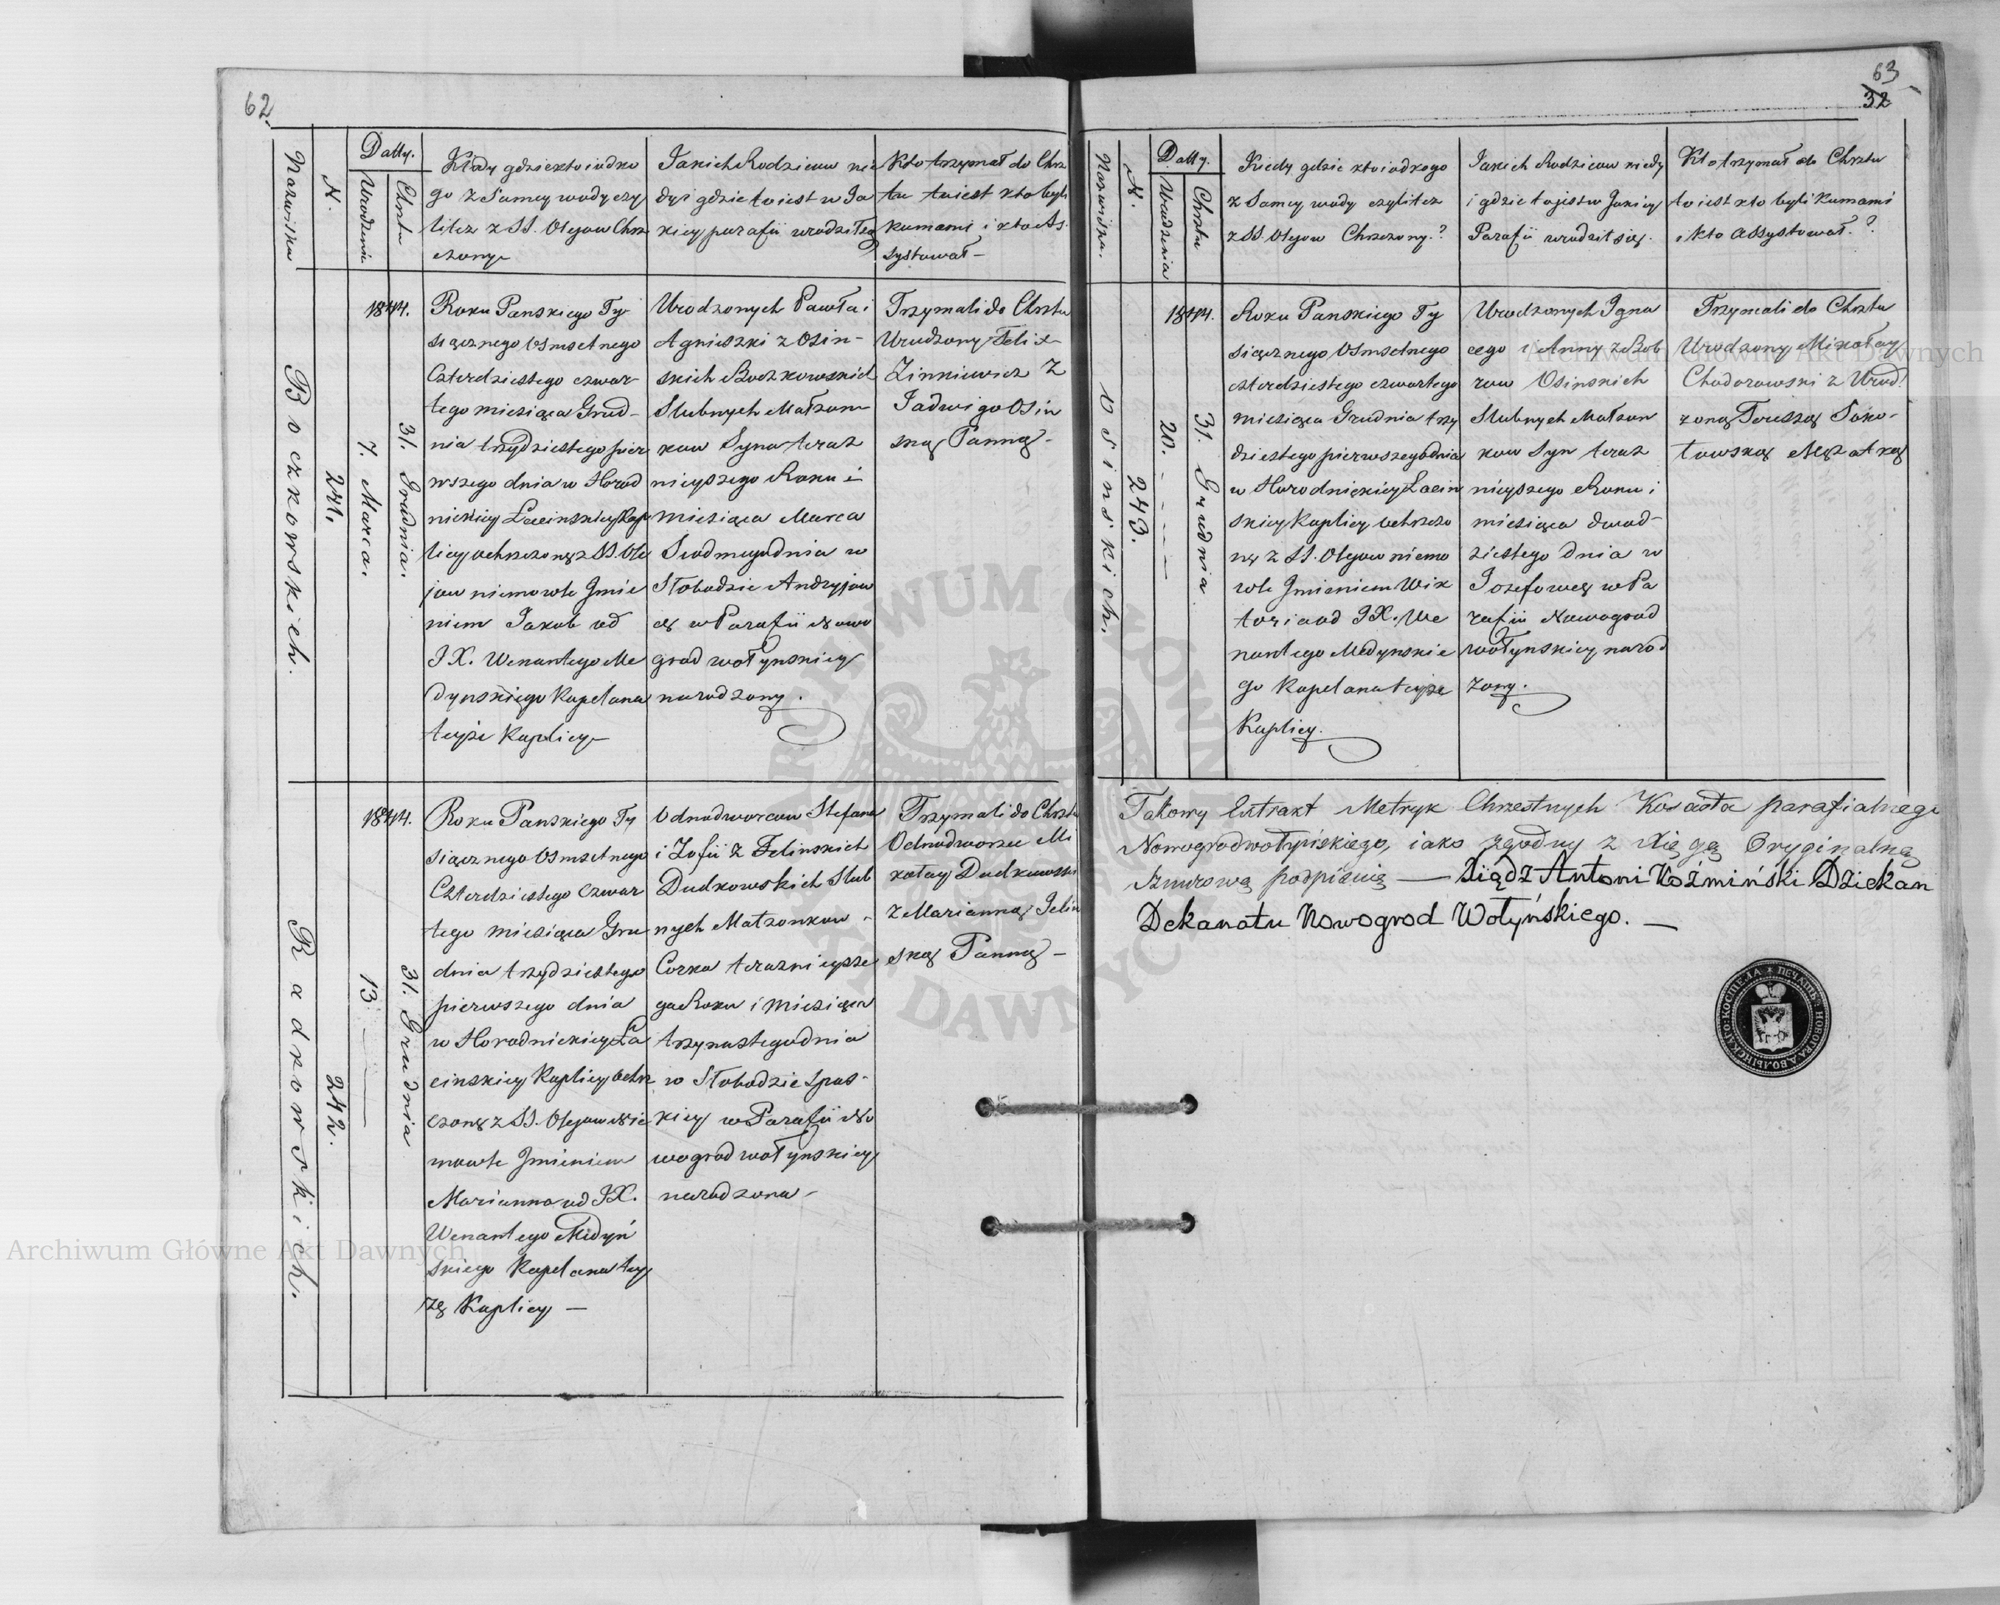 62.
Nazwiska
N.
Datty.
Urodzenia
Chrztu
Kiedy gdzie kto iednego
z Samey wody czy
litez z SS. Oleyow Chrz
czony
Jakich Rodzicow kie
dy i gdzie to iest w Ja
kiey parafii urodził się
Kto trzymał do Chrz
tu to iest kto byli
kumami i kto As
systował —
Boczkowskich.
241.
1844.
7. Marca.
31. Grudnia.
Roku Panskiego Ty
siącznego Osmsetnego
Czterdziestego czwar-
tego miesiąca Grud-
nia trzydziestego pier
wszego dnia w Horod
nickiey Łacinskiey Kap
licy ochrzczony z SS. Ole
jow niemowle Jmie
niem Jakub od
J X. Wenantego Me
dynskiego Kapelana
teyże Kaplicy
Urodzonych Pawła i
Agnieszki z Osin-
skich Boczkowskich
Slubnych Małzon
kow Syna teraz
nieyszego Roku i
miesiąca Marca
Siodmego dnia w
Słobodzie Andryjow
ce w Parafii Nowo
grad wołynskiey
narodzony.
Trzymali do Chrztu
Urodzony Felix
Zinkiewicz z
Jadwigą Osin
ską Panną -
Radkowskich.
242.
1844.
13
31. Grudnia
Roku Panskiego Ty
siącznego Osmsetnego
Czterdziestego Czwar
tego miesiąca Gru
dnia trzydziestego
pierwszego dnia
w Horodnickiey Ła
cinskiey Kaplicy ochrz
czony z SS. Oleyow Nie
mowle Jmieniem
Marianna od JX.
Wenantego Medyń
skiego Kapelana tey
że Kaplicy —
Odnodworcow Stefana
i Zofii z Felinskich
Dudkowskich Slub
nych Małzonkow -
Corka teraznieysze
go Roku i miesiąca
trzynastego dnia
w Słobodzie Spas-
kiey w Parafii No
wograd wołynskiey
narodzona -
Trzymali do Chrztu
Odnodworzec Mi
kołay Dudkowski
z Marianną Felin
ską Panną -
63
32
Nazwiska.
N.
Datty.
Urodzenia
Chrztu
Kiedy gdzie kto iednego
z Samey wody czylitez
z SS. Oleyow Chrzczony?
Jakich Rodzicow kiedy
i gdzie to jest w Jakiey
Parafii urodził się.
Kto trzymał do Chrztu
to iest kto byli Kumami
i kto Assystował?
Osinskich.
243.
1844.
20.
31. Grudnia
Roku Panskiego Ty
siącznego Osmsetnego
czterdziestego czwartego
miesiąca Grudnia trzy
dziestego pierwszego dnia
w Horodnickiey Łacin
skiey Kaplicy ochrzczo
ny z SS. Oleyow niemo
wle Jmieniem Wik
tori a od J X. We
nantego Medynskie
go Kapelana teyże
Kaplicy.
Urodzonych Igna
cego i Anny z Bob
row Osinskich
Slubnych Małzon
kow Syn teraz
nieyszego Roku i
miesiąca dwud-
ziestego dnia w
Jozefowce w Pa
rafii Nowograd
wołynskiey narod
zony.
Trzymali do Chrztu
Urodzony Mikołay
Chodorowski z Urod
zoną Teressą Soko-
łowską Męzatką
Takowy Extrakt Metryk Chrzestnych Koscioła parafialnego
Nowogrodwołyńskiego, iako zgodny z Xięgą Oryginalną
Sznurową podpisuię — Xiądz Antoni Koźmiński Dziekan
Dekanatu Nowogrod Wołyńskiego. —